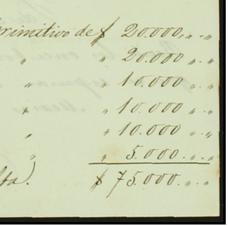 primitivo de $ 20.000,,.,,
" 20.000,,.,,
" 10.000,,.,,
" 10.000,,.,,
" 10.000,,.,,
" 5.000,,.,,
$ 75.000,,.,,